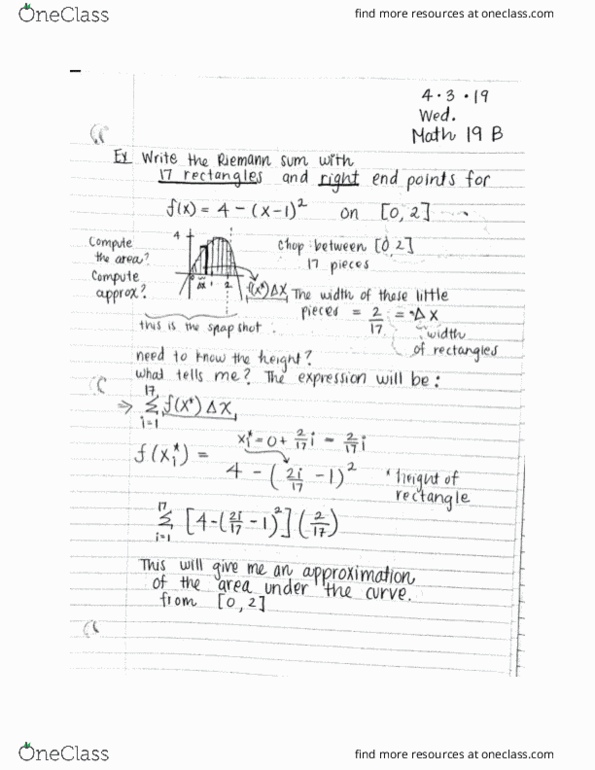 OneClass
find more resources at oneclass.com
4・3・19
Wed.
Math 19 B
Ex Write the Riemann sum with
17 rectangles and right end points for
f(x) = 4 - (x-1)² on [0, 2]
Compute
the area?
Compute
approx?
4
Δx 1 2
f(x*)Δx
this is the snapshot
chop between [0, 2]
17 pieces
The width of these little
pieces = 2/17 = Δx
width
of rectangles
need to know the height?
what tells me? The expression will be:
⇒ 17 Σ i=1 f(x*) Δx
xi* = 0 + 2/17 i = 2/17 i
f(xi*) = 4 - (2i/17 - 1)²
* height of
rectangle
17 Σ i=1 [4-(2i/17 - 1)²] (2/17)
This will give me an approximation
of the area under the curve.
from [0, 2]
OneClass
find more resources at oneclass.com